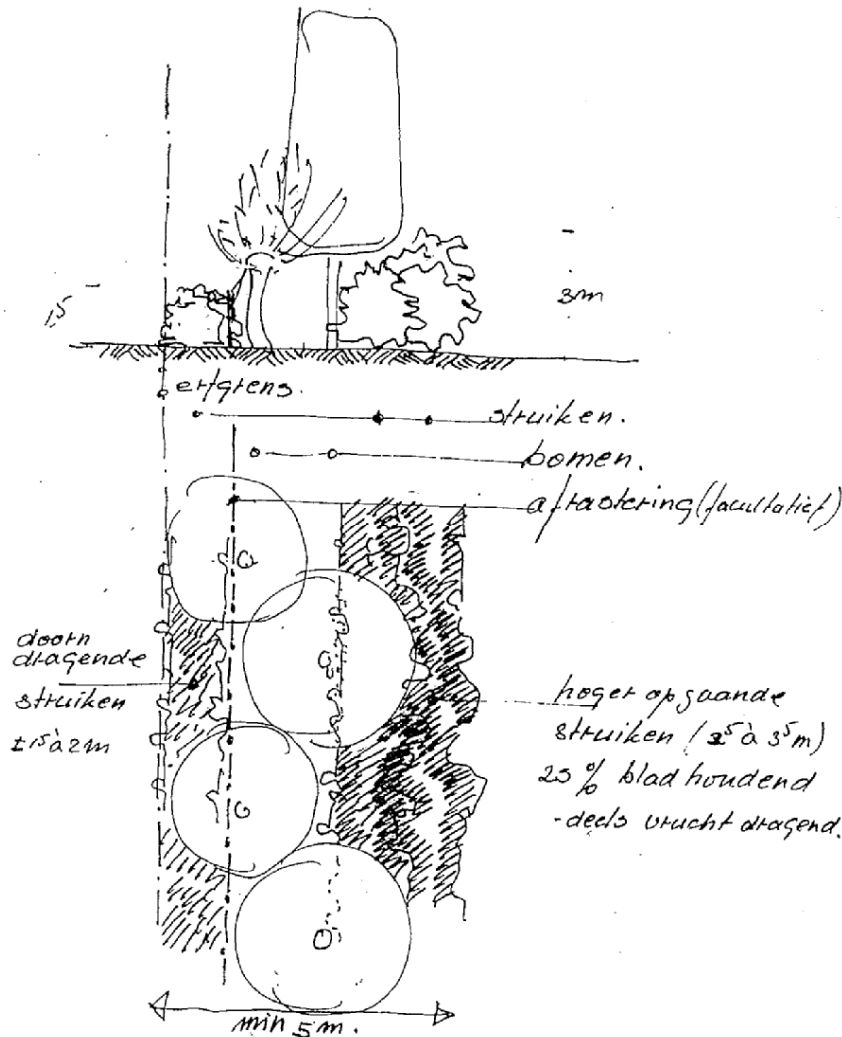 1⁵
3m
erfgrens.
struiken.
bomen.
afrastering (facultatief)
doorn
dragende
struiken
± 1⁵ à 2m
hoger opgaande
struiken (2⁵ à 3⁵m)
25% blad houdend
-deels vrucht dragend.
min 5m.